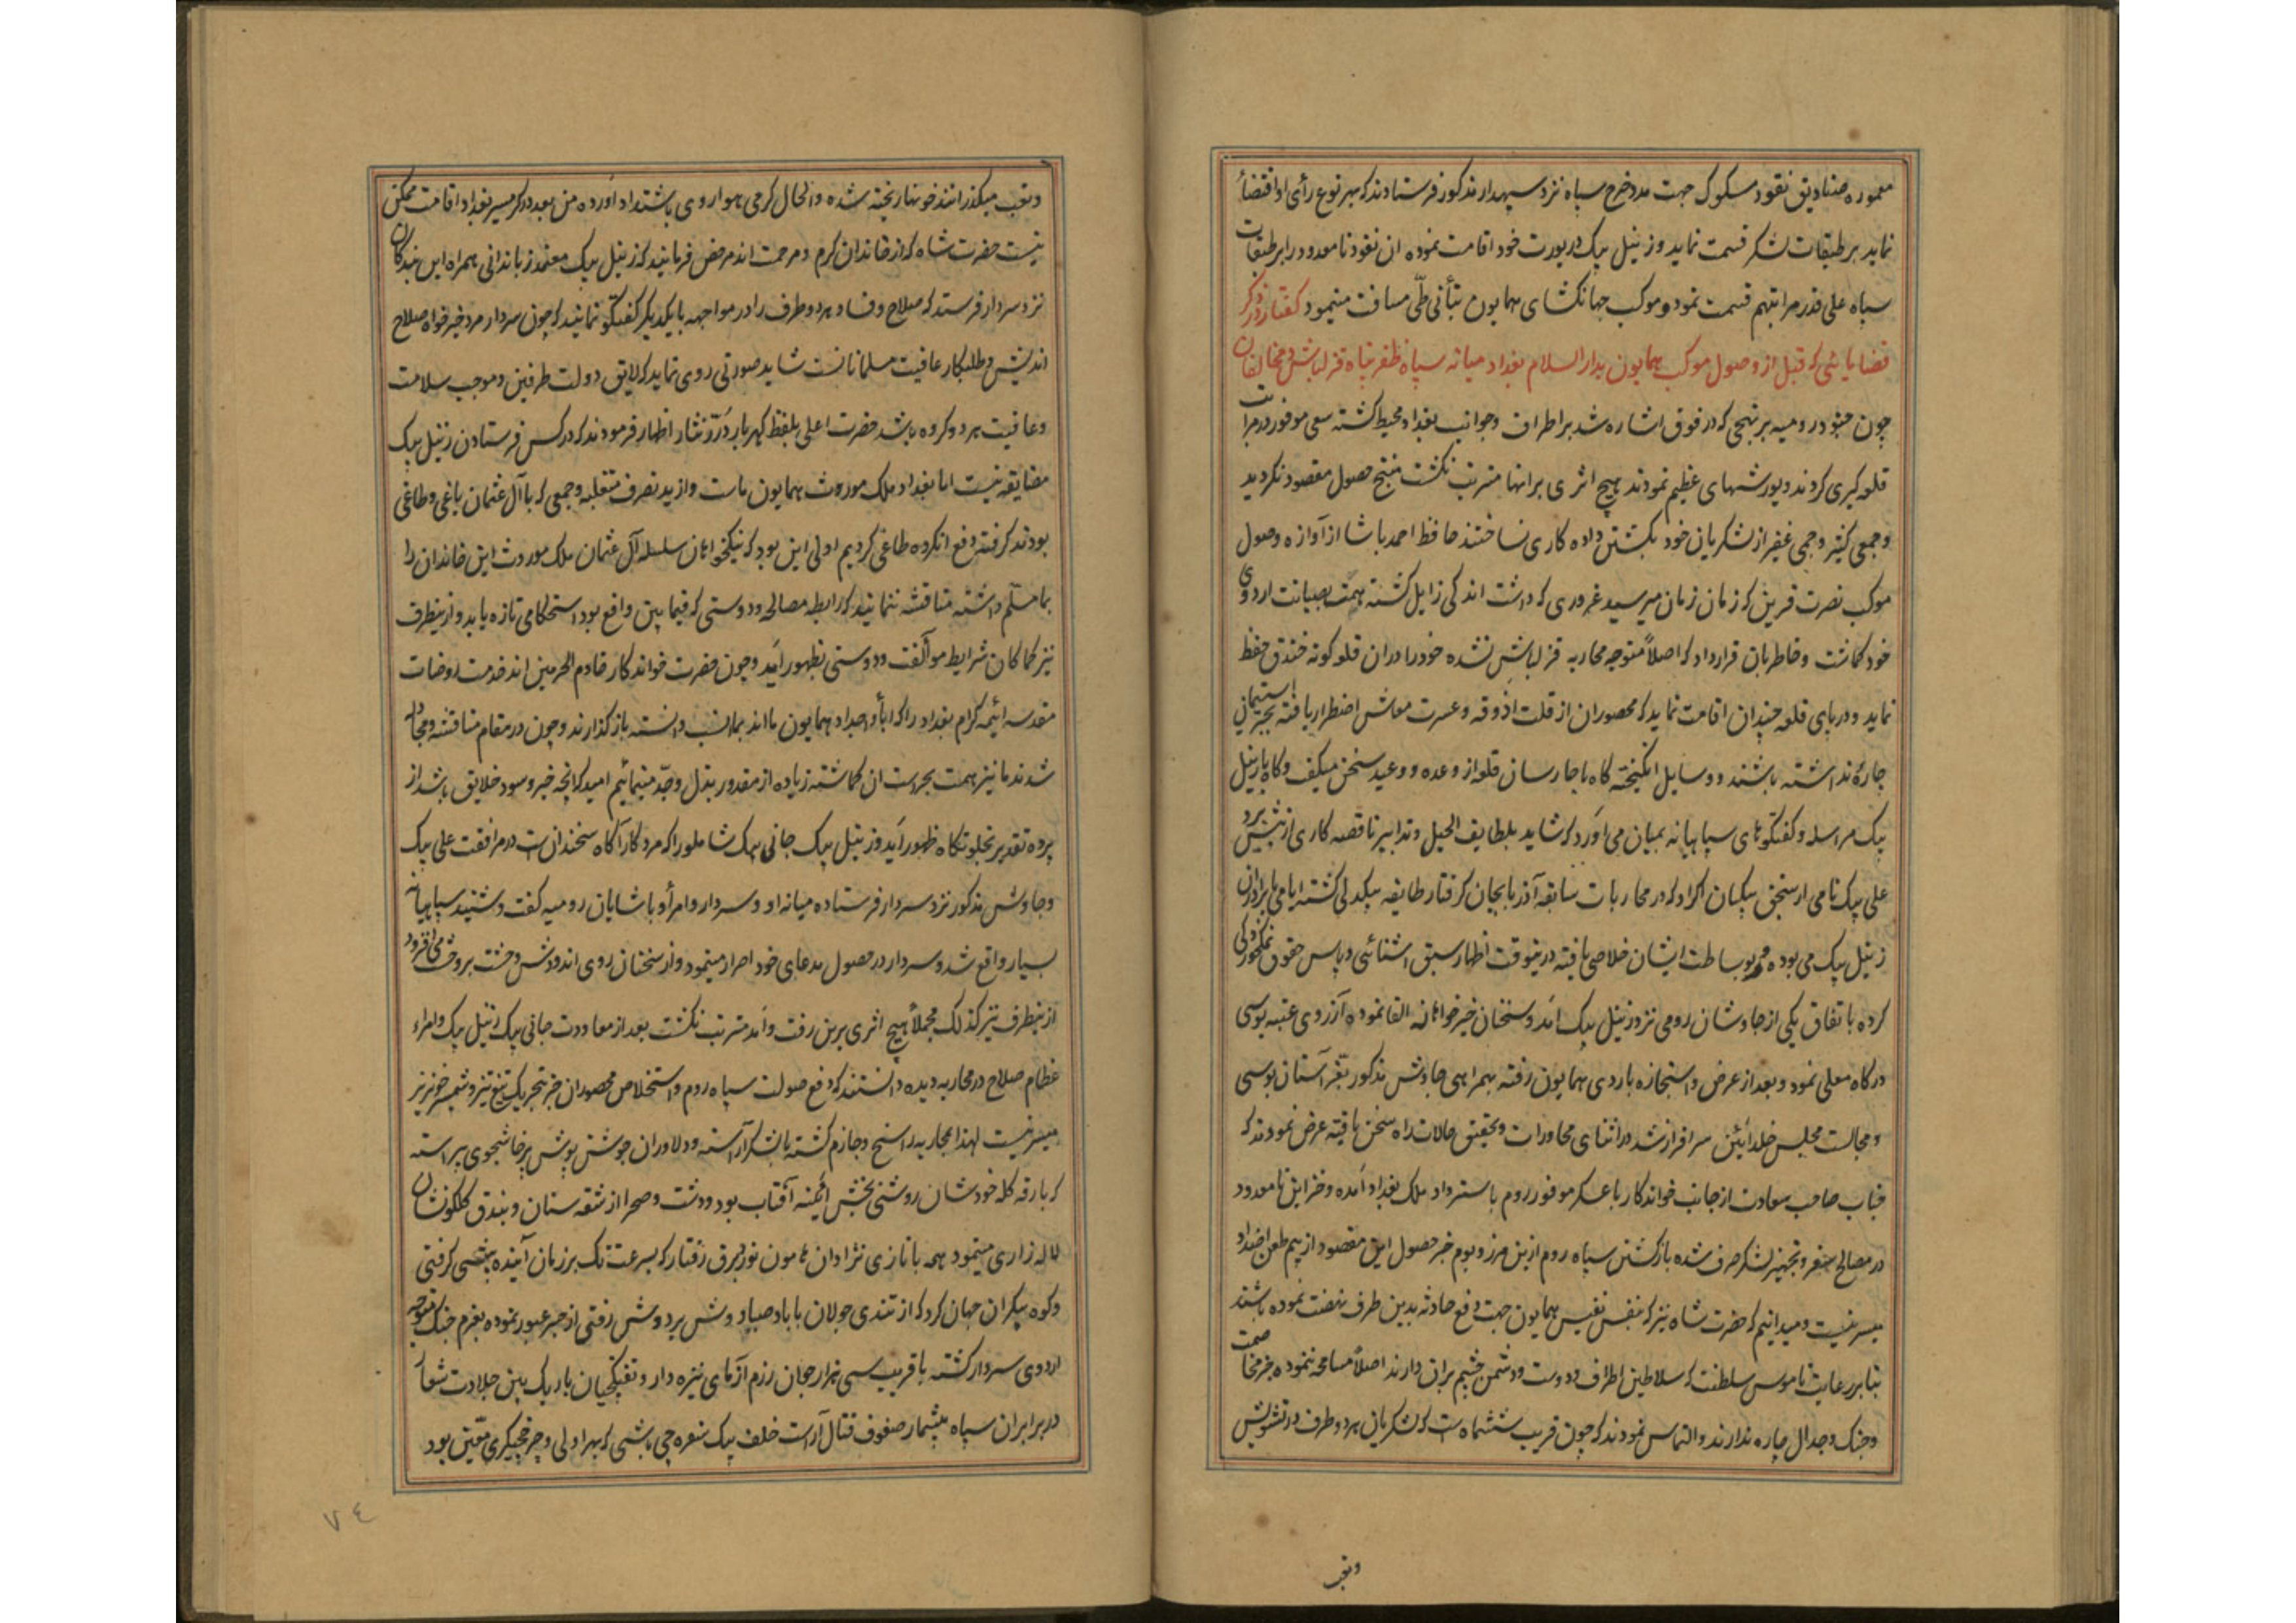 معموره صنادیق نقود مسکوک جهت مدد خرج سپاه نزد سپهدار مذکور فرستادند که بهر نوع رأی او اقتضا
نماید بر طبقات لشکر قسمت نماید و زینل بیک در یورت خود اقامت نموده ان نقود نامعدود را بر طبقات
سپاه علی قدر مراتبهم قسمت نمود و موکب جهانکشای همایون بتأنی طی مسافت مینمود کفتار در ذکر
قضایائی که قبل از وصول موکب همایون بدار السلام بغداد میانه سپاه ظفر پناه قزلباش و مخالفان
چون جنود رومیه بر نهجی که در فوق اشاره شد بر اطراف و جوانب بغداد محیط کشته سعی موفور در مراتب
قلعه کیری کردند و یورشهای عظیم نمودند هیچ اثری بر انها مترتب نکشت منتج حصول مقصود نکردید
و جمعی کثیر و جمی غفیر از لشکریان خود بکشتن داده کاری نساختند حافظ احمد پاشا از آوازه وصول
موکب نصرت قرین که زمان زمان میرسید غروری که داشت اندکی زایل کشته همت بصیانت اردوی
خود کماشت و خاطر بان قرار داد که اصلاً متوجه محاربه قزلباش نشده خود را در ان قلعه کونه خندق حفظ
نماید و در پای قلعه چندان اقامت نماید که محصوران از قلت اذوقه و عسرت معاش اضطرار یافته بجز استیمان
چارهٔ نداشته باشند و وسایل انکیخته کاه با جارسان قلعه از وعده و وعید سخن میکفت و کاه با زینل
بیک مراسله و کفتکوهای سپاهیانه بمیان می اورد که شاید بلطایف الحیل و تدابیر ناقصه کاری از پیش برد
علی بیک نامی از سنجق بیکیان اکراد که در محاربات سابقه آذربایجان کرفتار طایفه بیکدلی کشته ایامی با برادران
زینل بیک می بوده و بوساطت ایشان خلاصی یافته درینوقت اظهار سبق اشنائی و پاس حقوق نمکخوردکی
کرده باتفاق یکی از چاوشان رومی نزد زینل بیک امد و سخنان خیرخواهانه القا نموده آرزوی عتبه بوسی
درکاه معلی نمود و بعد از عرض و استجازه باردوی همایون رفته بهمراهی چاوش مذکور بعز آستان بوسی
و مجالست مجلس خلد آیین سرافراز شد در اثنای محاورات و تحقیق حالات راه سخن یافته عرض نمودند که
جناب صاحب سعادت از جانب خواندکار با عسکر موفور روم باسترداد ملک بغداد آمده و خزاین نامعدود
در مصالح سفر و تجهیز لشکر صرف شده بازکشتن سپاه روم ازین مرز و بوم جز حصول این مقصود از بیم طعن اضداد
میسر نیست و میدانیم که حضرت شاه نیز که بنفس نفیس همایون جهت دفع حادثه بدین طرف نهضت نموده باشند
بنابر رعایت ناموس سلطنت که سلاطین اطراف و دوست و دشمن چشم بران دارند اصلاً مسامحه ننموده بجز مخاصمت
و جنک و جدال چاره ندارند و التماس نمودند که چون قریب ششماه است که لشکریان هر دو طرف در تشویش
وتعب
وتعب میکذرانند خونها ریخته شده و الحال کرمی هوا روی باشتداد آورده من بعد در کرمسیر بغداد اقامت ممکن
نیست حضرت شاه که از خاندان کرم و مرحمت اند مرخص فرمایند که زینل بیک معتمد زباندانی همراه این بندکان
نزد سردار فرستد که صلاح و فساد هر دو طرف را در مواجهه با یکدیکر کفتکو نمایند که چون سردار مرد خیرخواه صلاح
اندیش و طلبکار عافیت مسلمانانست شاید صورتی روی نماید که لایق دولت طرفین و موجب سلامت
و عافیت هر دو کروه باشد حضرت اعلی بلفظ کهربار درر نثار اظهار فرمودند که در کس فرستادن زینل بیک
مضایقه نیست اما بغداد ملک موروث همایون ماست و از ید تصرف متغلبه و جمعی که با آل عثمان یاغی و طاغی
بودند کرفته دفع انکروه طاغی کردیم اولی این بود که نیکخواهان سلسله آل عثمان ملک موروث این خاندان را
بما مسلم داشته مناقشه ننمایند که رابطه مصالحه و دوستی که فیما بین واقع بود استحکامی تازه یابد و ازینطرف
نیز کماکان شرایط موالفت و دوستی بظهور آید و چون حضرت خواندکار خادم الحرمین اند خدمت روضات
مقدسه ائمه کرام بغداد را که آبأ و اجداد همایون ما اند بما انسب دانسته بازکذارند و چون در مقام مناقشه و مجادله
شدند ما نیز همت بحراست ان کماشته زیاده از مقدور بذل و جد مینمائیم امید که انچه خیر و سود خلایق باشد از
پرده تقدیر بجلوتکاه ظهور آید و زینل بیک جانی بیک شاملو را که مرد کار آکاه سخندانست در مرافقت علی بیک
و چاوش مذکور نزد سردار فرستاده میانه او و سردار و امرأ و پاشایان رومیه کفت و شنید سپاهیانه
بسیار واقع شد و سردار در حصول مدعای خود اصرار مینمود و از سخنان روی اندودش وحشت بروحشت می افزود
ازینطرف نیز کذلک مجملاً هیچ اثری برین رفت و آمد مترتب نکشت بعد از معاودت جانی بیک زینل بیک و امراء
عظام صلاح در محاربه دیده دانستند که دفع صولت سپاه روم و استخلاص محصوران جز بتحریک تیغ تیز و شمشیر خونریز
میسر نیست لهذا بمحاربه راسخ و جازم کشته با لشکر آراسته و دلاوران جوشن پوش پرخاشجوی پیراسته
که بارقه کله خودشان روشنی بخش آئینه آفتاب بود و دشت و صحرا از شقه سنان و بیدق کلکونشان
لاله زاری مینمود همه با تازی نژادان هامون نورد برق رفتار که بسرعت تک بر زمان آینده پیشی کرفتی
و کوه پیکران جهان کرد که از تندی جولان با باد صبا دوش بر دوش رفتی از جسر عبور نموده بعزم جنک متوجه
اردوی سردار کشته با قریب سی هزار جوان رزم آزمای نیزه دار و تفنکچیان باریک بین جلادت شعار
در برابر ان سپاه بیشمار صفوف قتال آراست خلف بیک سفره چی باشی که بهراولی و چرخچیکری معین بود
٧٤